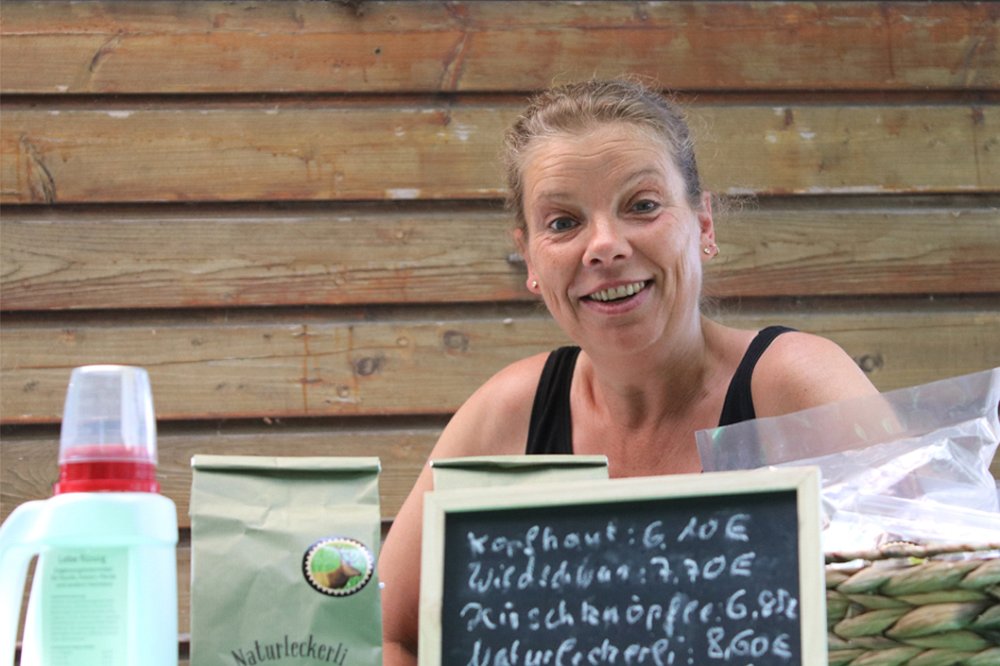 Kopfhaut: 6,10€
Wildschwan: 7,70€
Hirschknöpfe: 6,85€
Naturleckerli: 8,60€
Naturleckerli
Leber flüssig